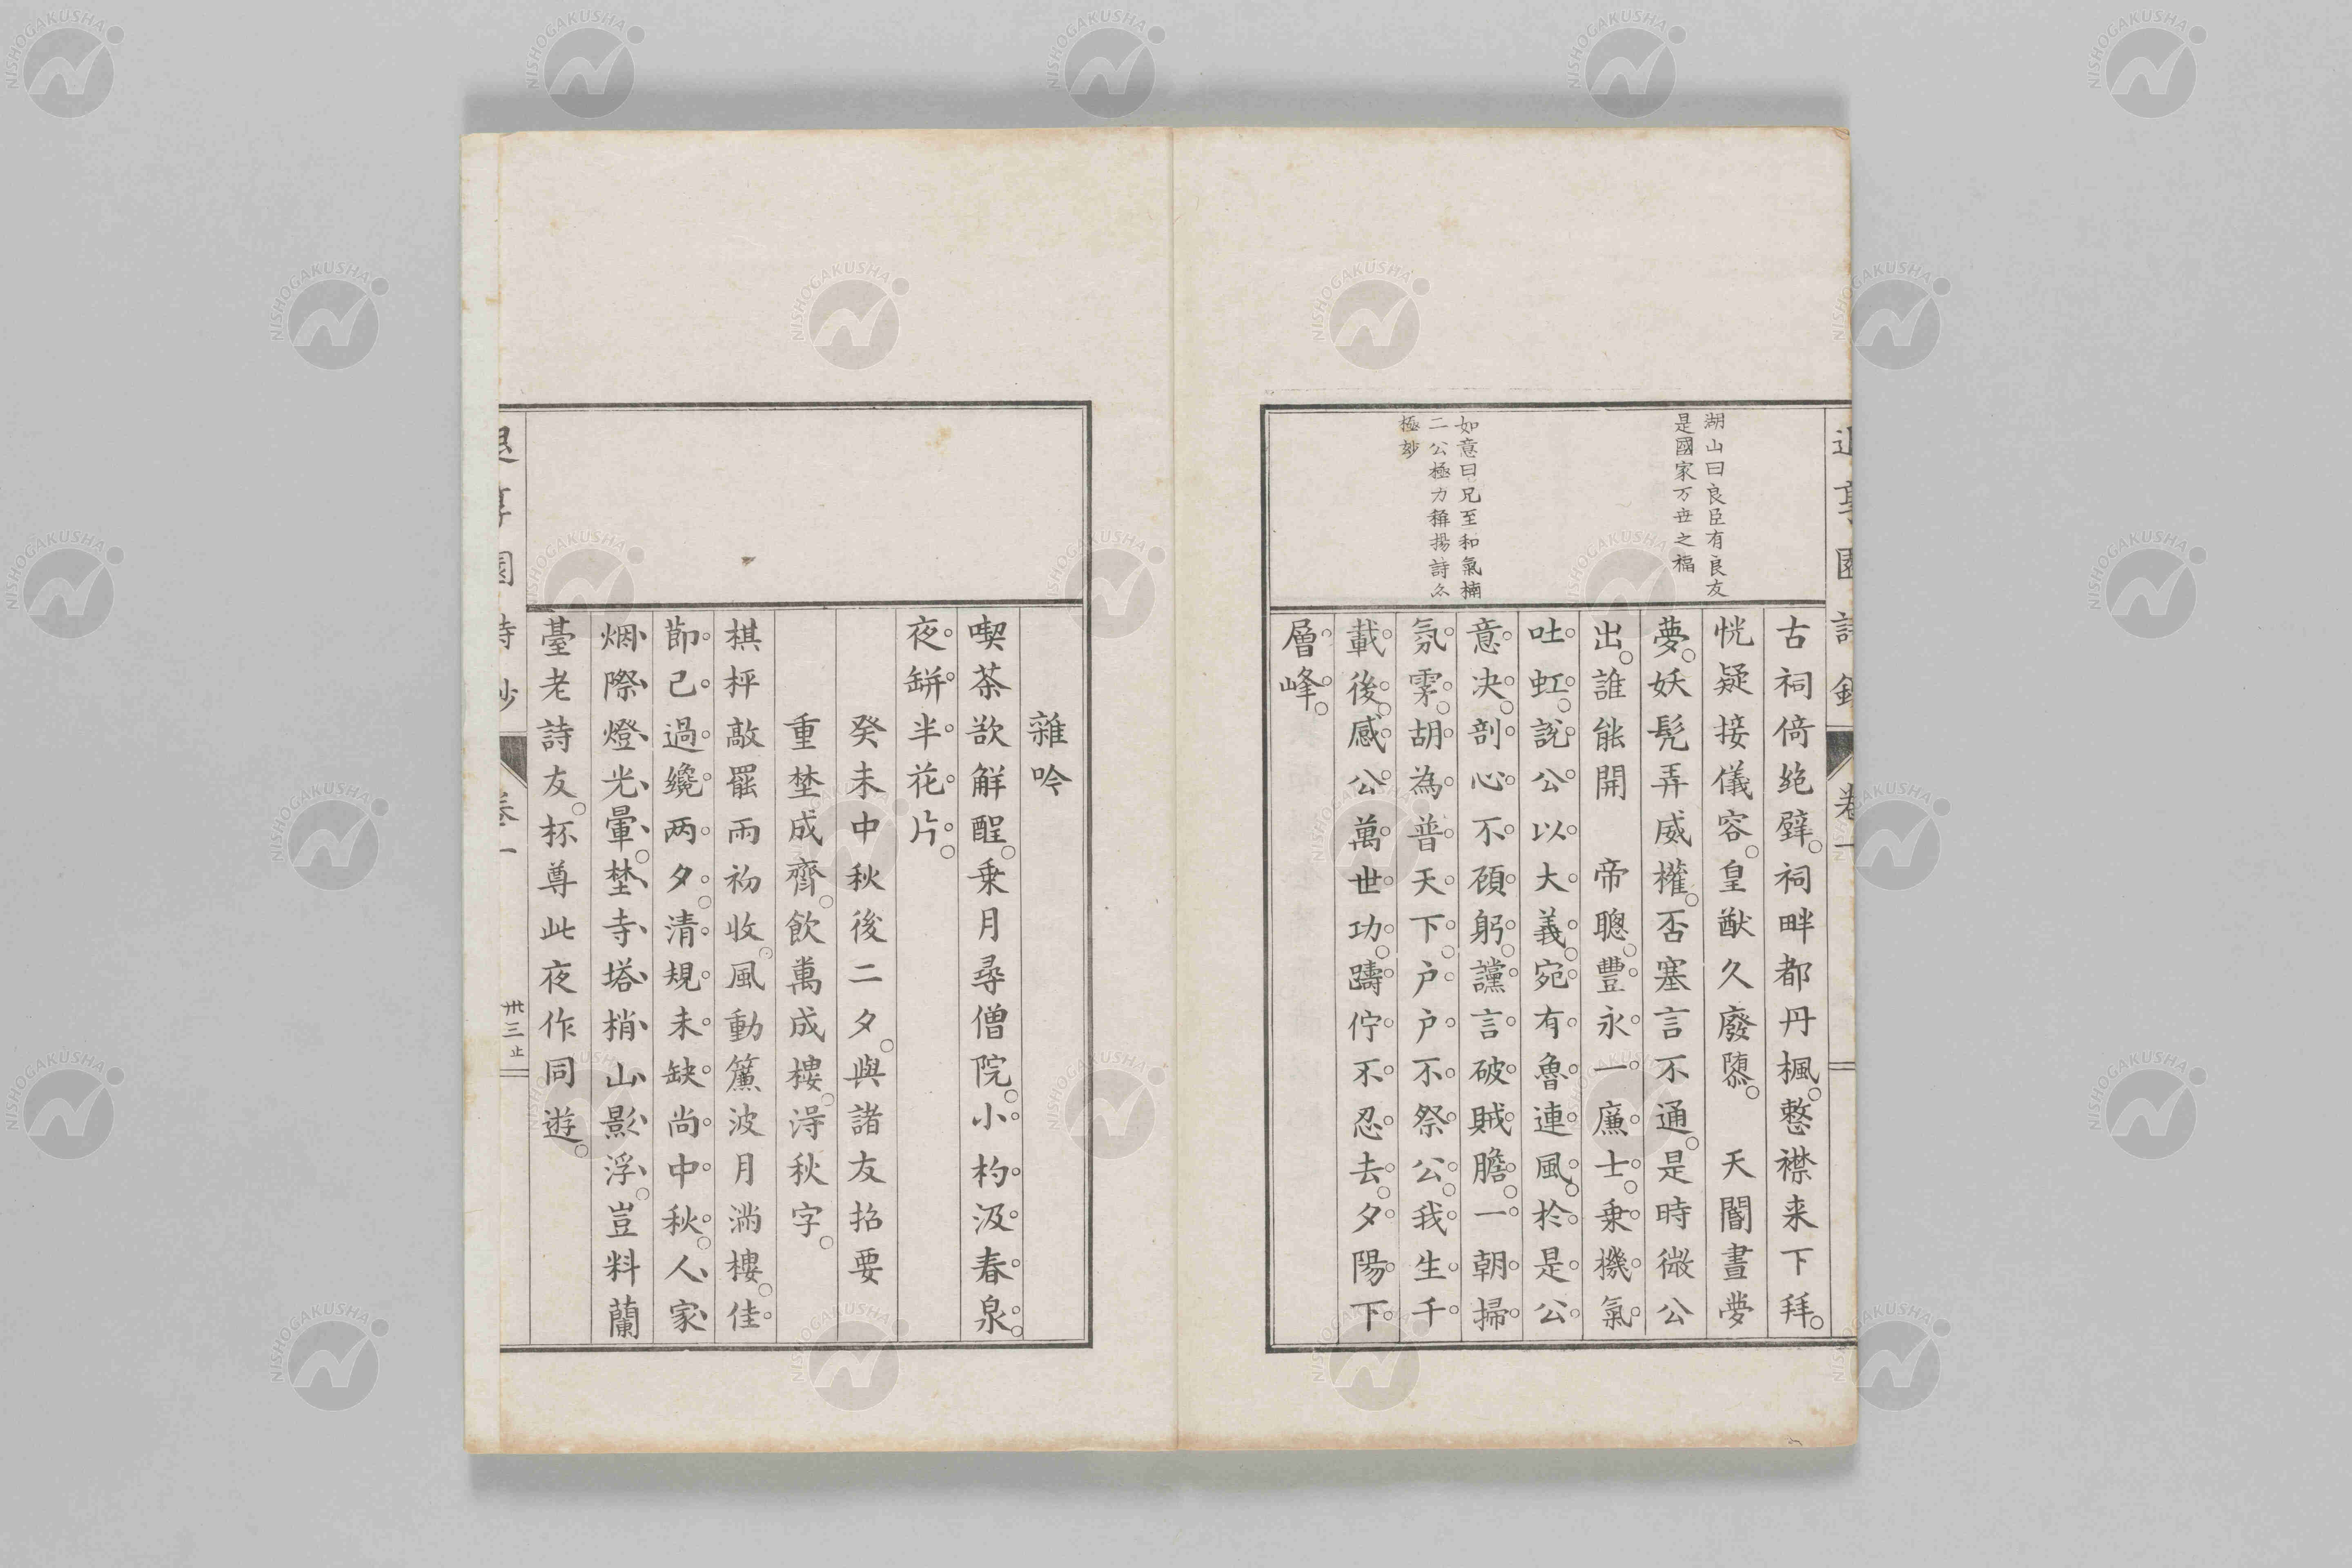 湖山曰良臣有良友
是國家万世之福
如意曰兄至和氣楠
二公極力稱揚詩亦
極妙
古祠倚絶壁祠畔都丹楓整襟来下拜
恍疑接儀容皇猷久廢隳　天閽晝夢
夢妖髡弄威權否塞言不通是時微公
出誰能開　帝聰豐永一廉士乗機氣
吐虹説公以大義宛有魯連風於是公
意决剖心不顧躬讜言破賊膽一朝掃
氛霧胡為普天下戸戸不祭公我生千
載後感公萬世功躊佇不忍去夕陽下
層峰
雜吟
喫茶欲解酲乗月尋僧院小杓汲春泉
夜缾半花片
癸未中秋後二夕與諸友招要
重埜成齋飲萬成樓得秋字
棋枰敲罷雨初收風動簾波月滿樓佳
節已過纔两夕清規未缺尚中秋人家
烟際燈光暈埜寺塔梢山影浮豈料蘭
臺老詩友杯尊此夜作同遊
卷一
卅三止
NISHOGAKUSHA